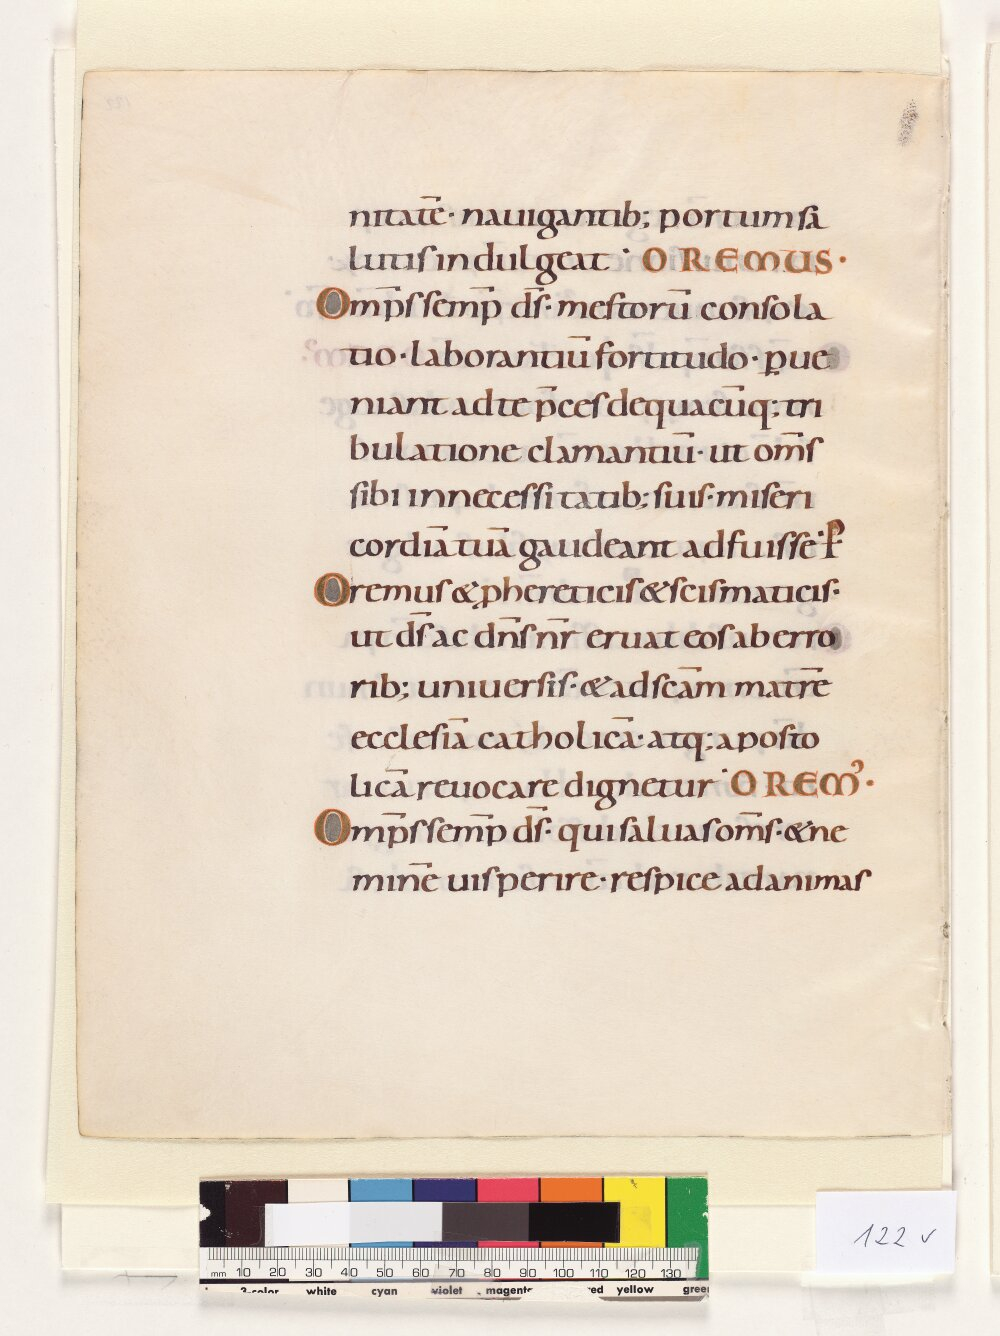 nitatē· nauigantib; portum sa
lutis indulgeat· OREMUS·
Omp̄s semp̄ ds̄· mestorū consola
tio· laborantiū fortitudo· ꝑue
niant ad te p̄ces de quacūq; tri
bulatione clamantiū· ut om̄s
sibi in necessitatib; suis· miseri
cordiā tuā gaudeant adfuisse· P̄
Oremus & ꝓ hereticis & scismaticis·
ut ds̄ ac dn̄s nr̄ eruat eos ab erro
rib; uniuersis· & ad scām matrē
ecclesiā catholicā· atq; aposto
licā reuocare dignetur· OREM̄·
Omp̄s semp̄ ds̄· qui saluas om̄s· & ne
minē uis perire· respice ad animas
122 v
mm 10 20 30 40 50 60 70 80 90 100 110 120 130
3-color white cyan violet magenta red yellow green